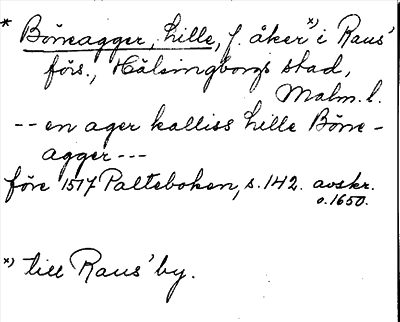 * Böneagger, hille, f. åker *) i Raus'
förs., Hälsingborgs stad,
Malm. l.
-- en ager kalliss hille Böne-
agger ---
före 1517 Palteboken, s. 142. avskr.
o. 1650.
*) till Raus' by.